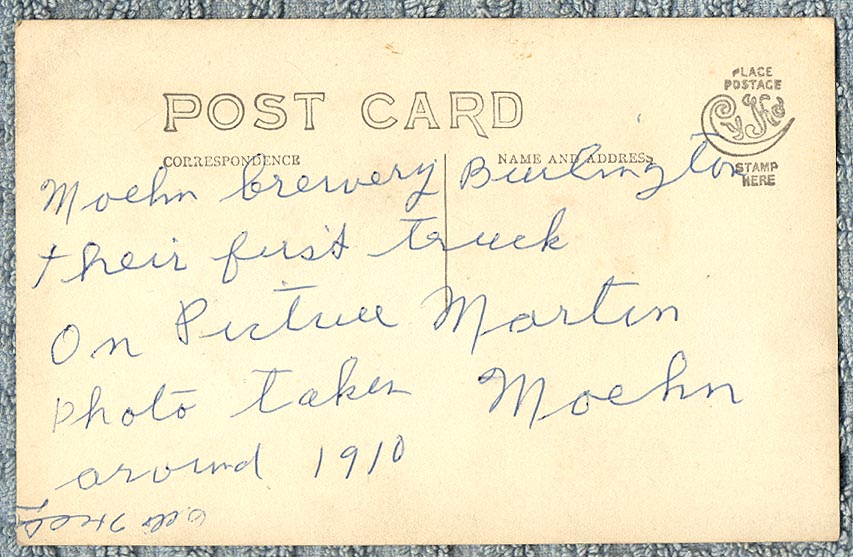 POST CARD
PLACE
POSTAGE
CYKO
STAMP
HERE
CORRESPONDENCE
NAME AND ADDRESS
Moehn brewery Burlington
their first truck
On Picture Martin
Moehn
Photo taken
around 1910